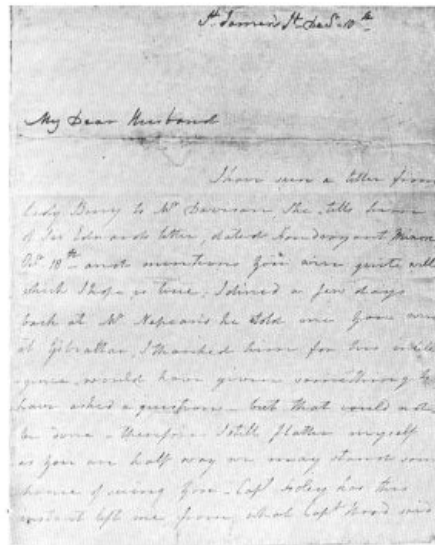 St. James's St. Dec. 10th
My Dear Husband
I have seen a letter from
Lady Berry to Mr Davison she tells him
of Sir Edward's letter, dated Foudroyant
Oct 18th and mentions you were quite well
which I hope is true, I dined a few days
back at Mr Nepean's he told me you were
at Gibraltar, I thanked him for his intelli
gence, would have given something to
have asked a question - but that could not
be done - therefore I still flatter myself
as you are half way we may stand some
chance of seeing you - Capt has this
left me from what Capt Hood said